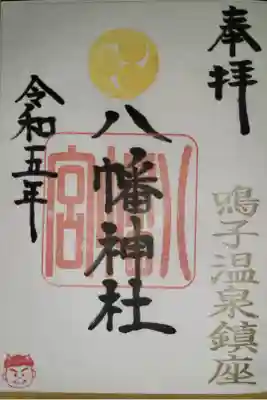 奉拝
八幡神社
八幡宮
令和五年
鳴子温泉鎮座